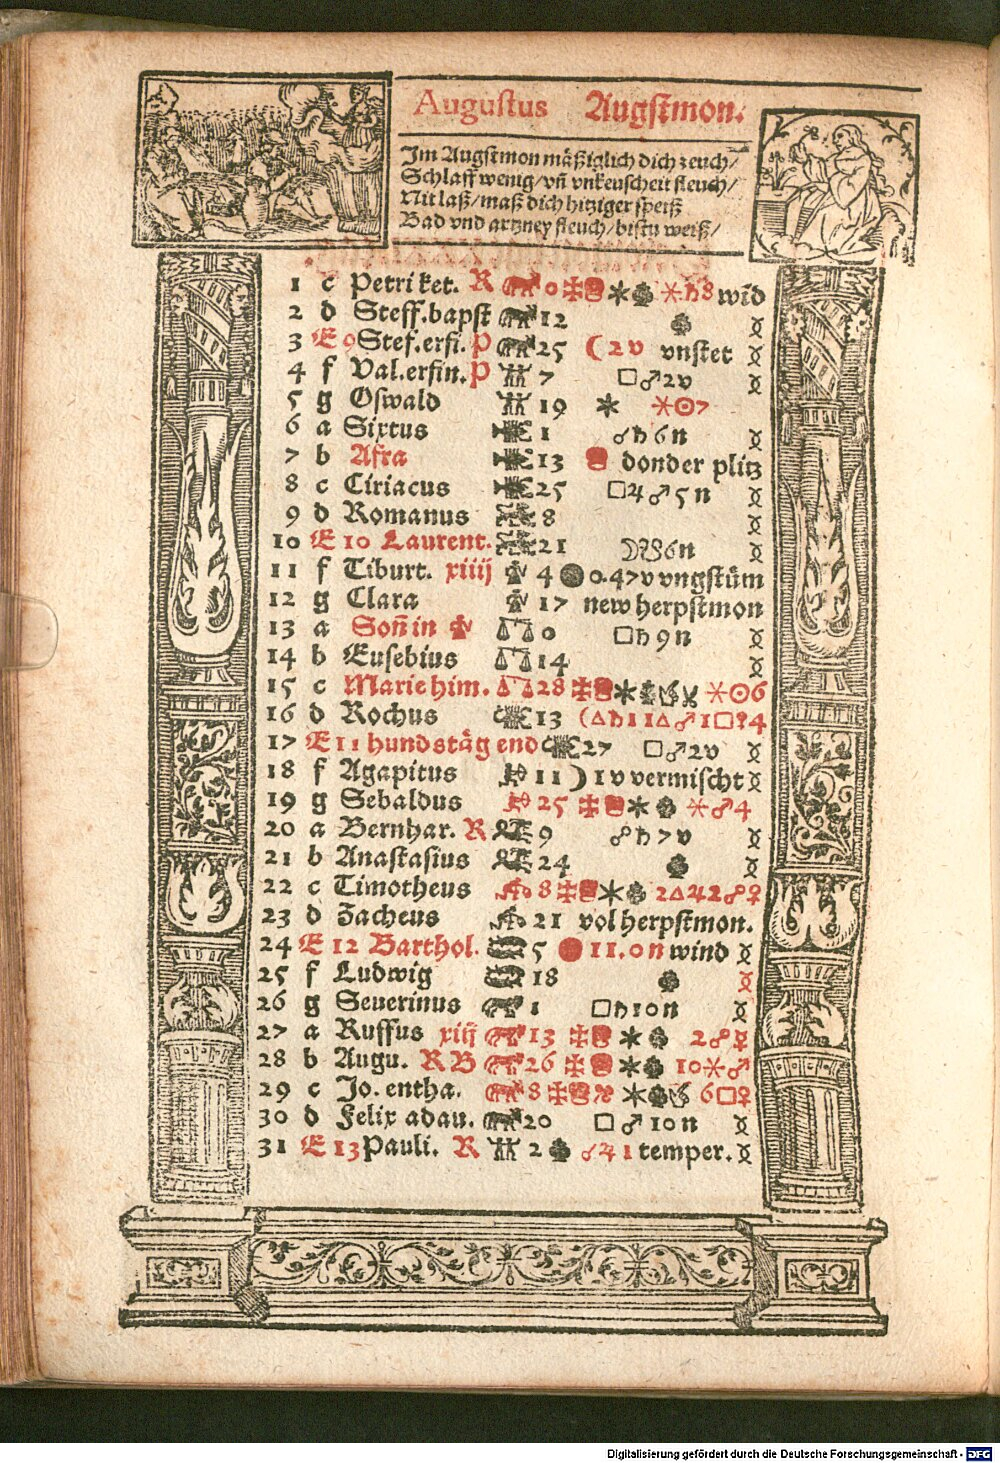 Augustus Augstmon.
Im Augstmon mäßiglich dich zeuch/
Schlaff wenig/vñ vnkeuscheit fleuch/
Nit laß/maß dich hitziger speiß
Bad vnd artzney fleuch/bistu weiß/
1 c Petri ket. R ♈ 0 ✠ * ⚹♄8 wīd
2 d Steff.bapst ♉ 12
3 E 9 Stef.erfi. P ♉ 25 ( 2 v vnstet
4 f Val.erfin. P ♊ 7 □♂2v
5 g Oswald ♊ 19 * ⚹☉7
6 a Sixtus ♋ 1 ☌♄6n
7 b Afra ♋ 13 donder plitz
8 c Ciriacus ♋ 25 □♃♂5n
9 d Romanus ♌ 8
10 E 10 Laurent. ♌ 21 6n
11 f Tiburt. xiiij ♍ 4 ● 0.47v vngstüm
12 g Clara ♍ 17 new herpstmon
13 a Soñ in ♍ ♎ 0 □♄9n
14 b Eusebius ♎ 14
15 c Marie him. ♎ 28 ✠ * ⚹☉6
16 d Rochus ♏ 13 (△♄11△♂1□♀4
17 E 11 hundstäg end ♏ 27 □♂2v
18 f Agapitus ♐ 11 ) 1v vermischt
19 g Sebaldus ♐ 25 ✠ * ⚹♂4
20 a Bernhar. R ♑ 9 ☍♄7v
21 b Anastasius ♑ 24
22 c Timotheus ♒ 8 ✠ * 2△♃2☍♀
23 d Zacheus ♒ 21 vol herpstmon.
24 E 12 Barthol. ♓ 5 ● 11.0n wind
25 f Ludwig ♓ 18
26 g Seuerinus ♈ 1 □♄10n
27 a Ruffus xiij ♈ 13 ✠ * 2☍☿
28 b Augu. R B ♈ 26 ✠ * 10⚹♂
29 c Jo. entha. ♉ 8 ✠ * 6□♀
30 d Felix adau. ♉ 20 □♂10n
31 E 13 Pauli. R ♊ 2 ☌♃1 temper.
Digitalisierung gefördert durch die Deutsche Forschungsgemeinschaft - DFG